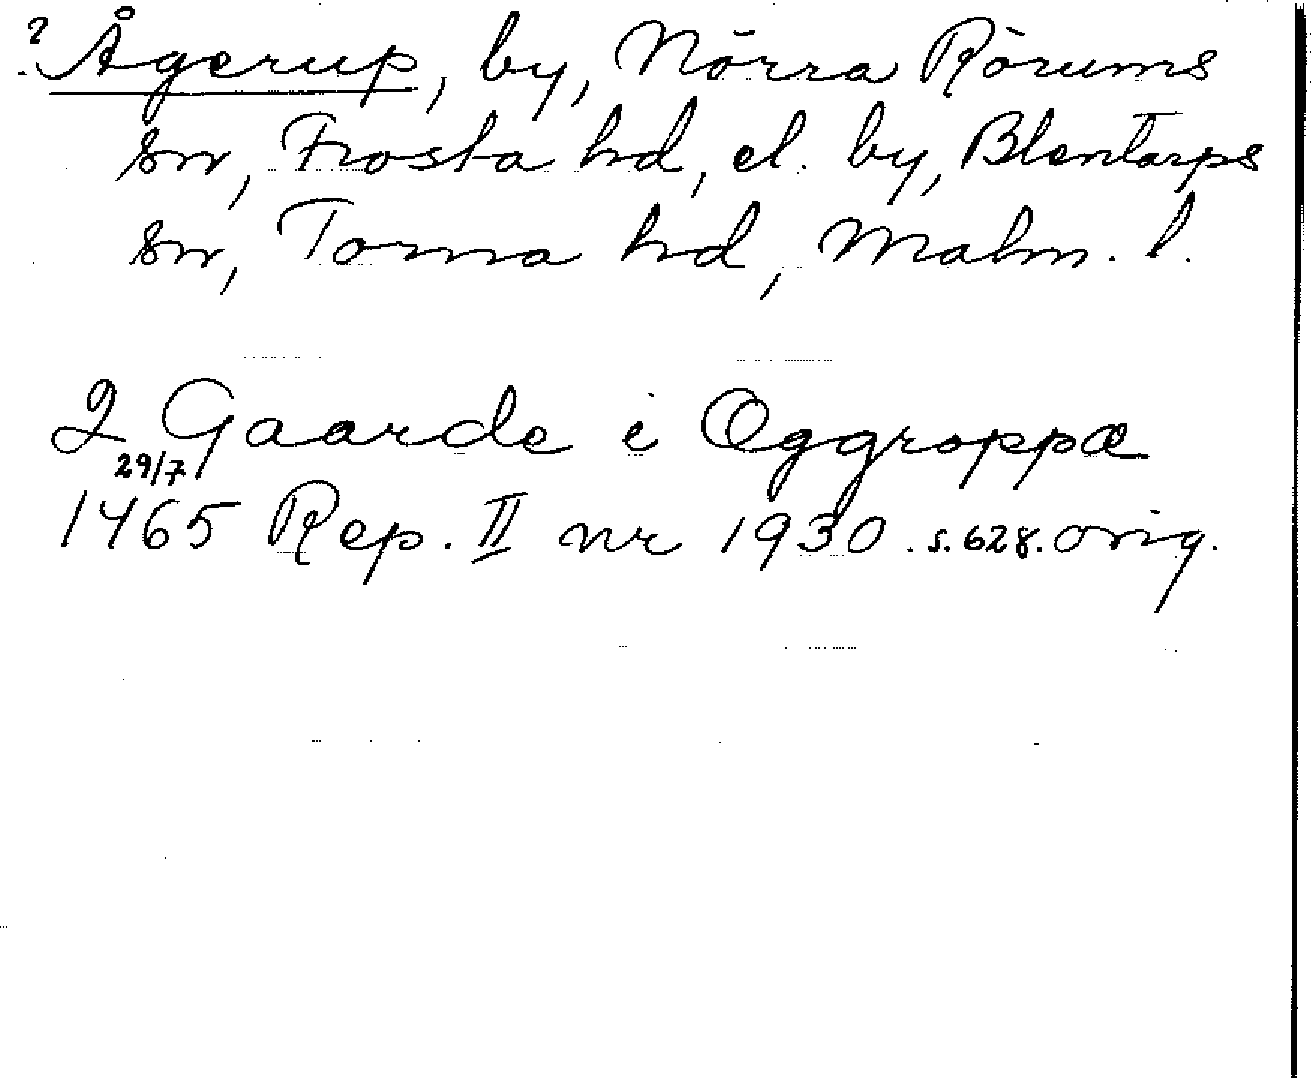 ? Ågerup, by, Norra Rörums
sn, Frosta hd, el. by, Blentarps
sn, Torna hd, Malm. l.
2 Gaarde i Oggroppæ
29/7
1465 Rep. II nr 1930. s. 628. orig.